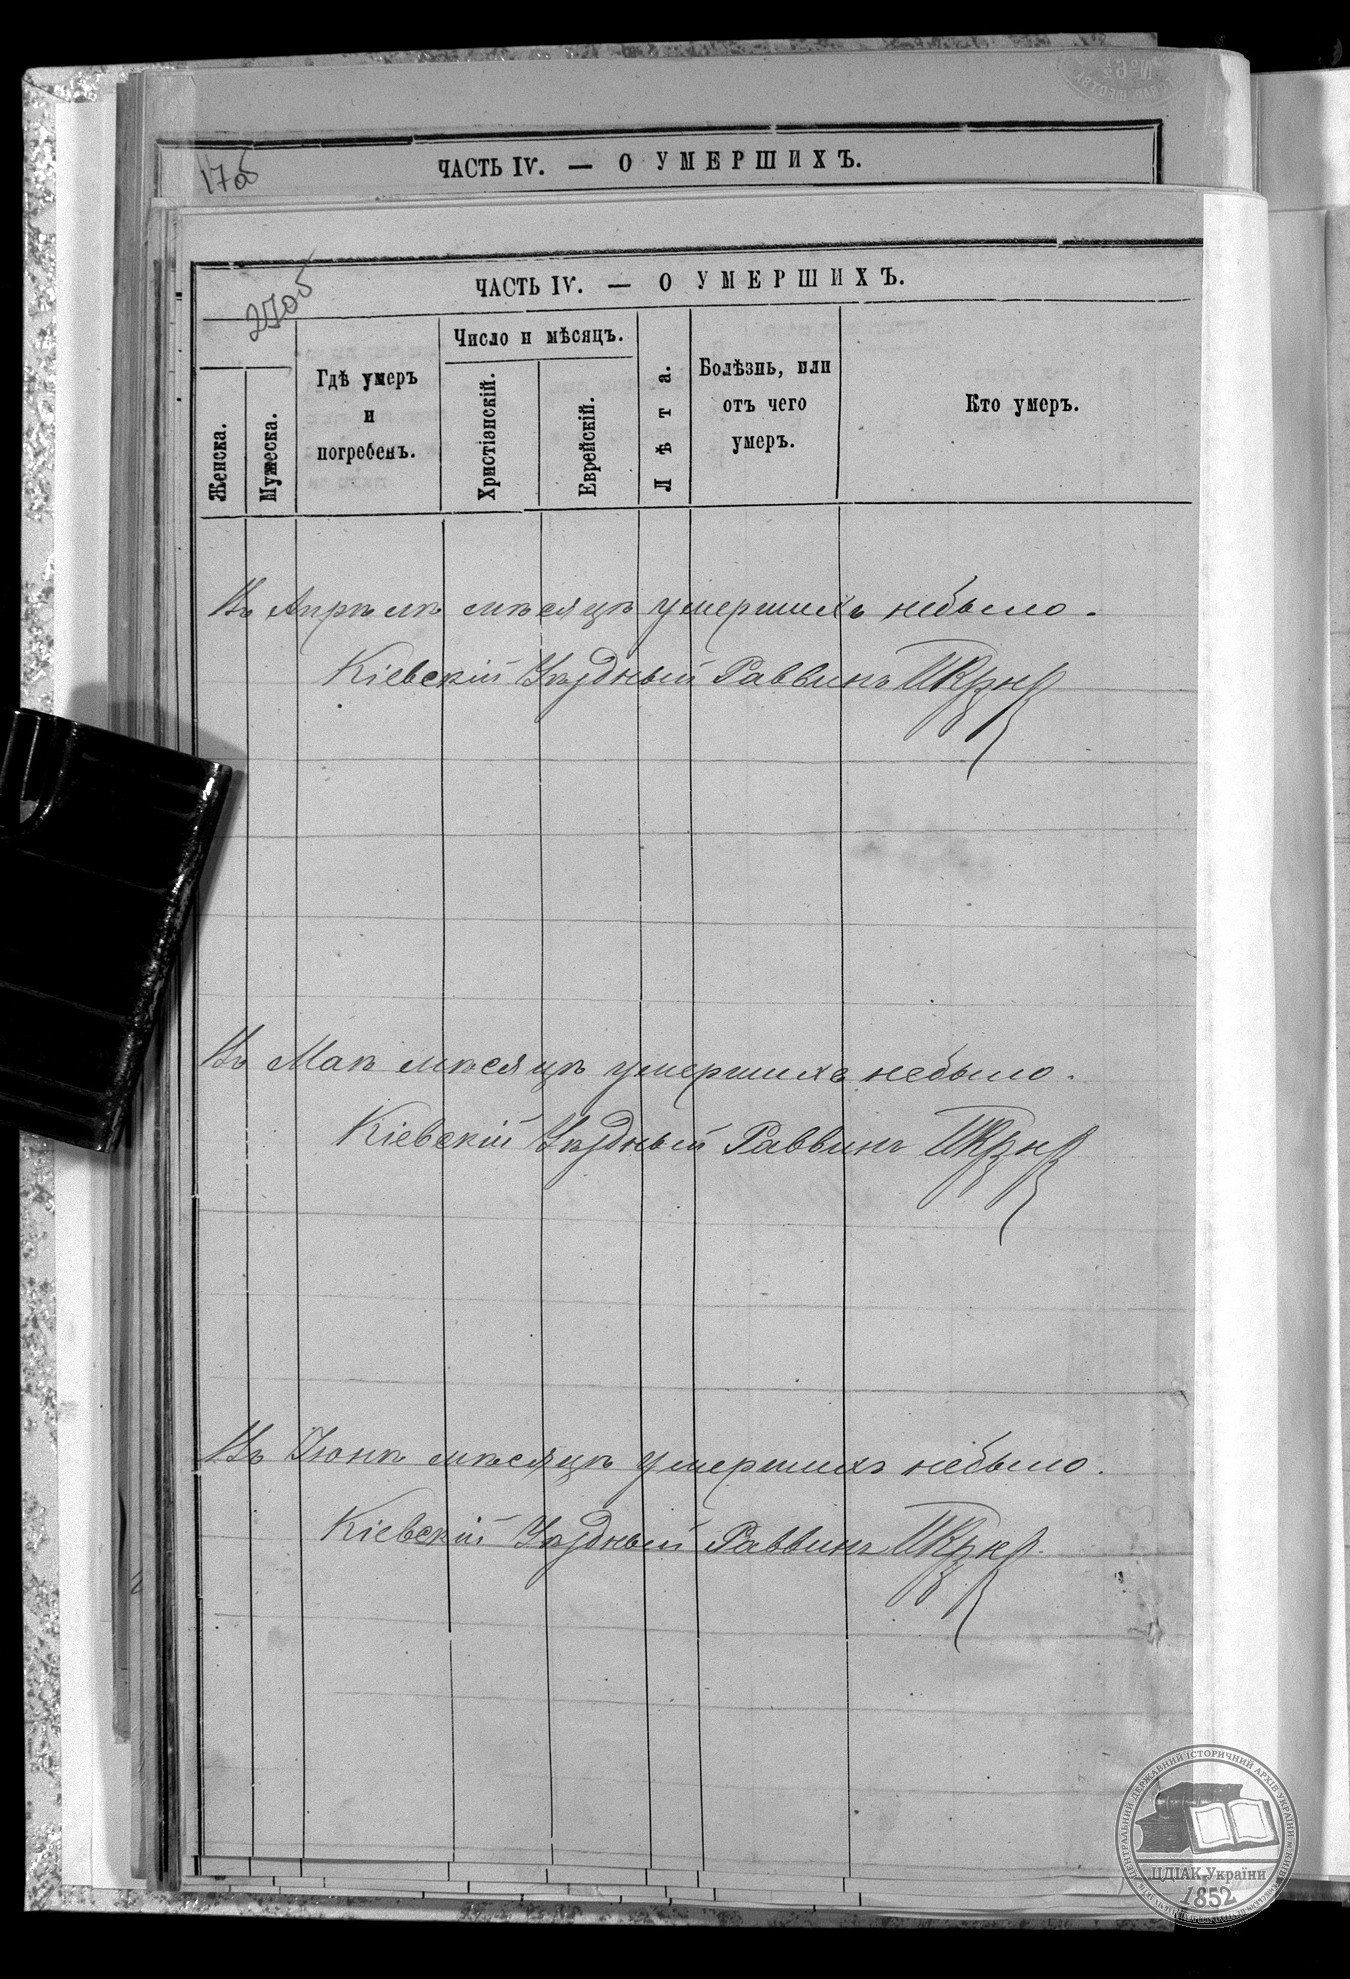 17об
ЧАСТЬ IV. — О УМЕРШИХЪ.
27об
ЧАСТЬ IV. — О УМЕРШИХЪ.
Женска.
Мужеска.
Гдѣ умеръ
и
погребенъ.
Число и мѣсяцъ.
Христіанскій.
Еврейскій.
Лѣта.
Болѣзнь, или
отъ чего
умеръ.
Кто умеръ.
Въ Апрѣлѣ мѣсяцѣ умершихъ небыло.
Кіевскій Уѣздный Раввинъ
Въ Маѣ мѣсяцѣ умершихъ небыло.
Кіевскій Уѣздный Раввинъ
Въ Іюнѣ мѣсяцѣ умершихъ небыло.
Кіевскій Уѣздный Раввинъ
ЦЕНТРАЛЬНИЙ ДЕРЖАВНИЙ ІСТОРИЧНИЙ АРХІВ УКРАЇНИ м. КИЇВ
ЦДІАК України
1852